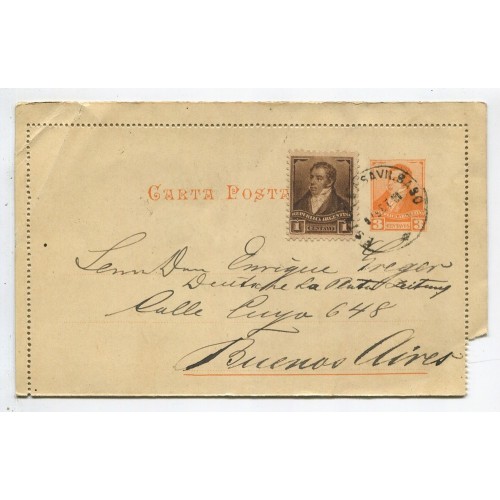 CARTA POSTA
REPUBLICA ARGENTINA
1 CENTAVO 1
3 CENTAVOS 3
Senor Don Enrique Gregor
Deutsche La Plata Zeitung
Calle Cuyo 648
Buenos Aires